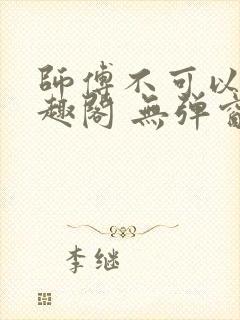 師傅不可以
趣閣 無弹
李继